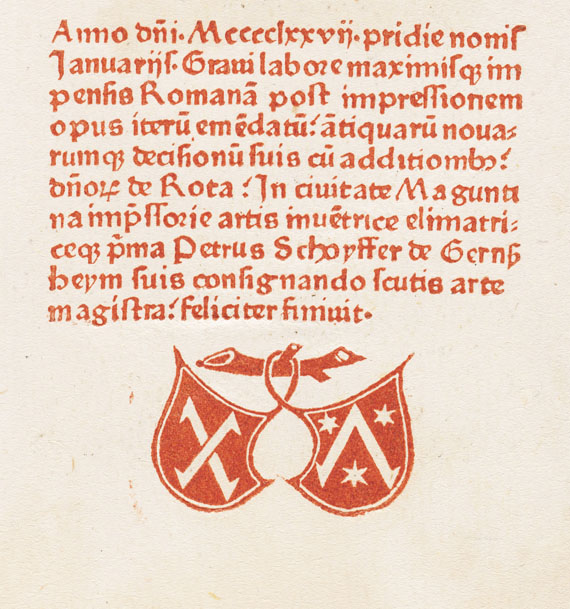 Anno dñi. Mccccclxxvij. pridie nonis
Januarijs. Graui labore maximisqꝫ im
pensis Romanã post impressionem
opus iterũ emẽdatũ: ãtiquarũ noua-
rumqꝫ decisionũ suis cũ additiombꝰ:
dñoꝝ de Rota: In ciuitate Magunti
na imp̃ssorie artis inuẽtrice elimatri-
ceqꝫ p̃ma Petrus Schoyffer de Gernß
heym suis consignando scutis arte
magistra: feliciter finiuit.